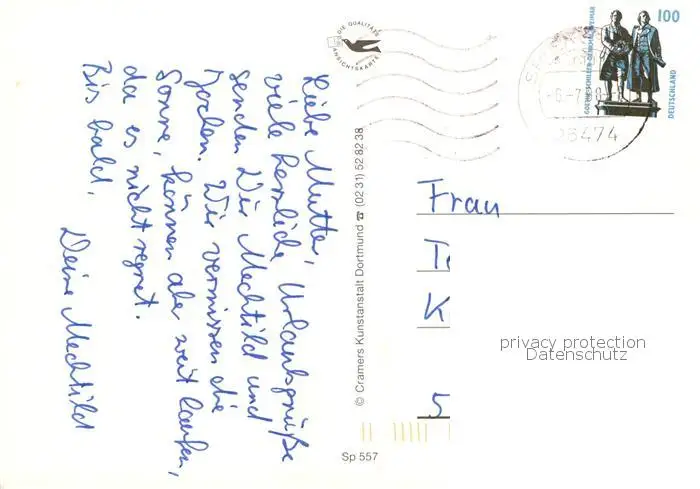 Liebe Mutter,
viele herzliche Urlaubsgrüße
senden Dir Mechtild und
Jochen. Wir vermissen die
Sonne, können aber weit laufen,
da es nicht regnet.
Bis bald,
Deine Mechtild
DIE QUALITÄTS
ANSICHTSKARTE
© Cramers Kunstanstalt Dortmund ☎ (02 31) 52 82 38
Sp 557
GOETHE-SCHILLER-DENKMAL WEIMAR
100
DEUTSCHLAND
26474
Frau
K
5
privacy protection
Datenschutz